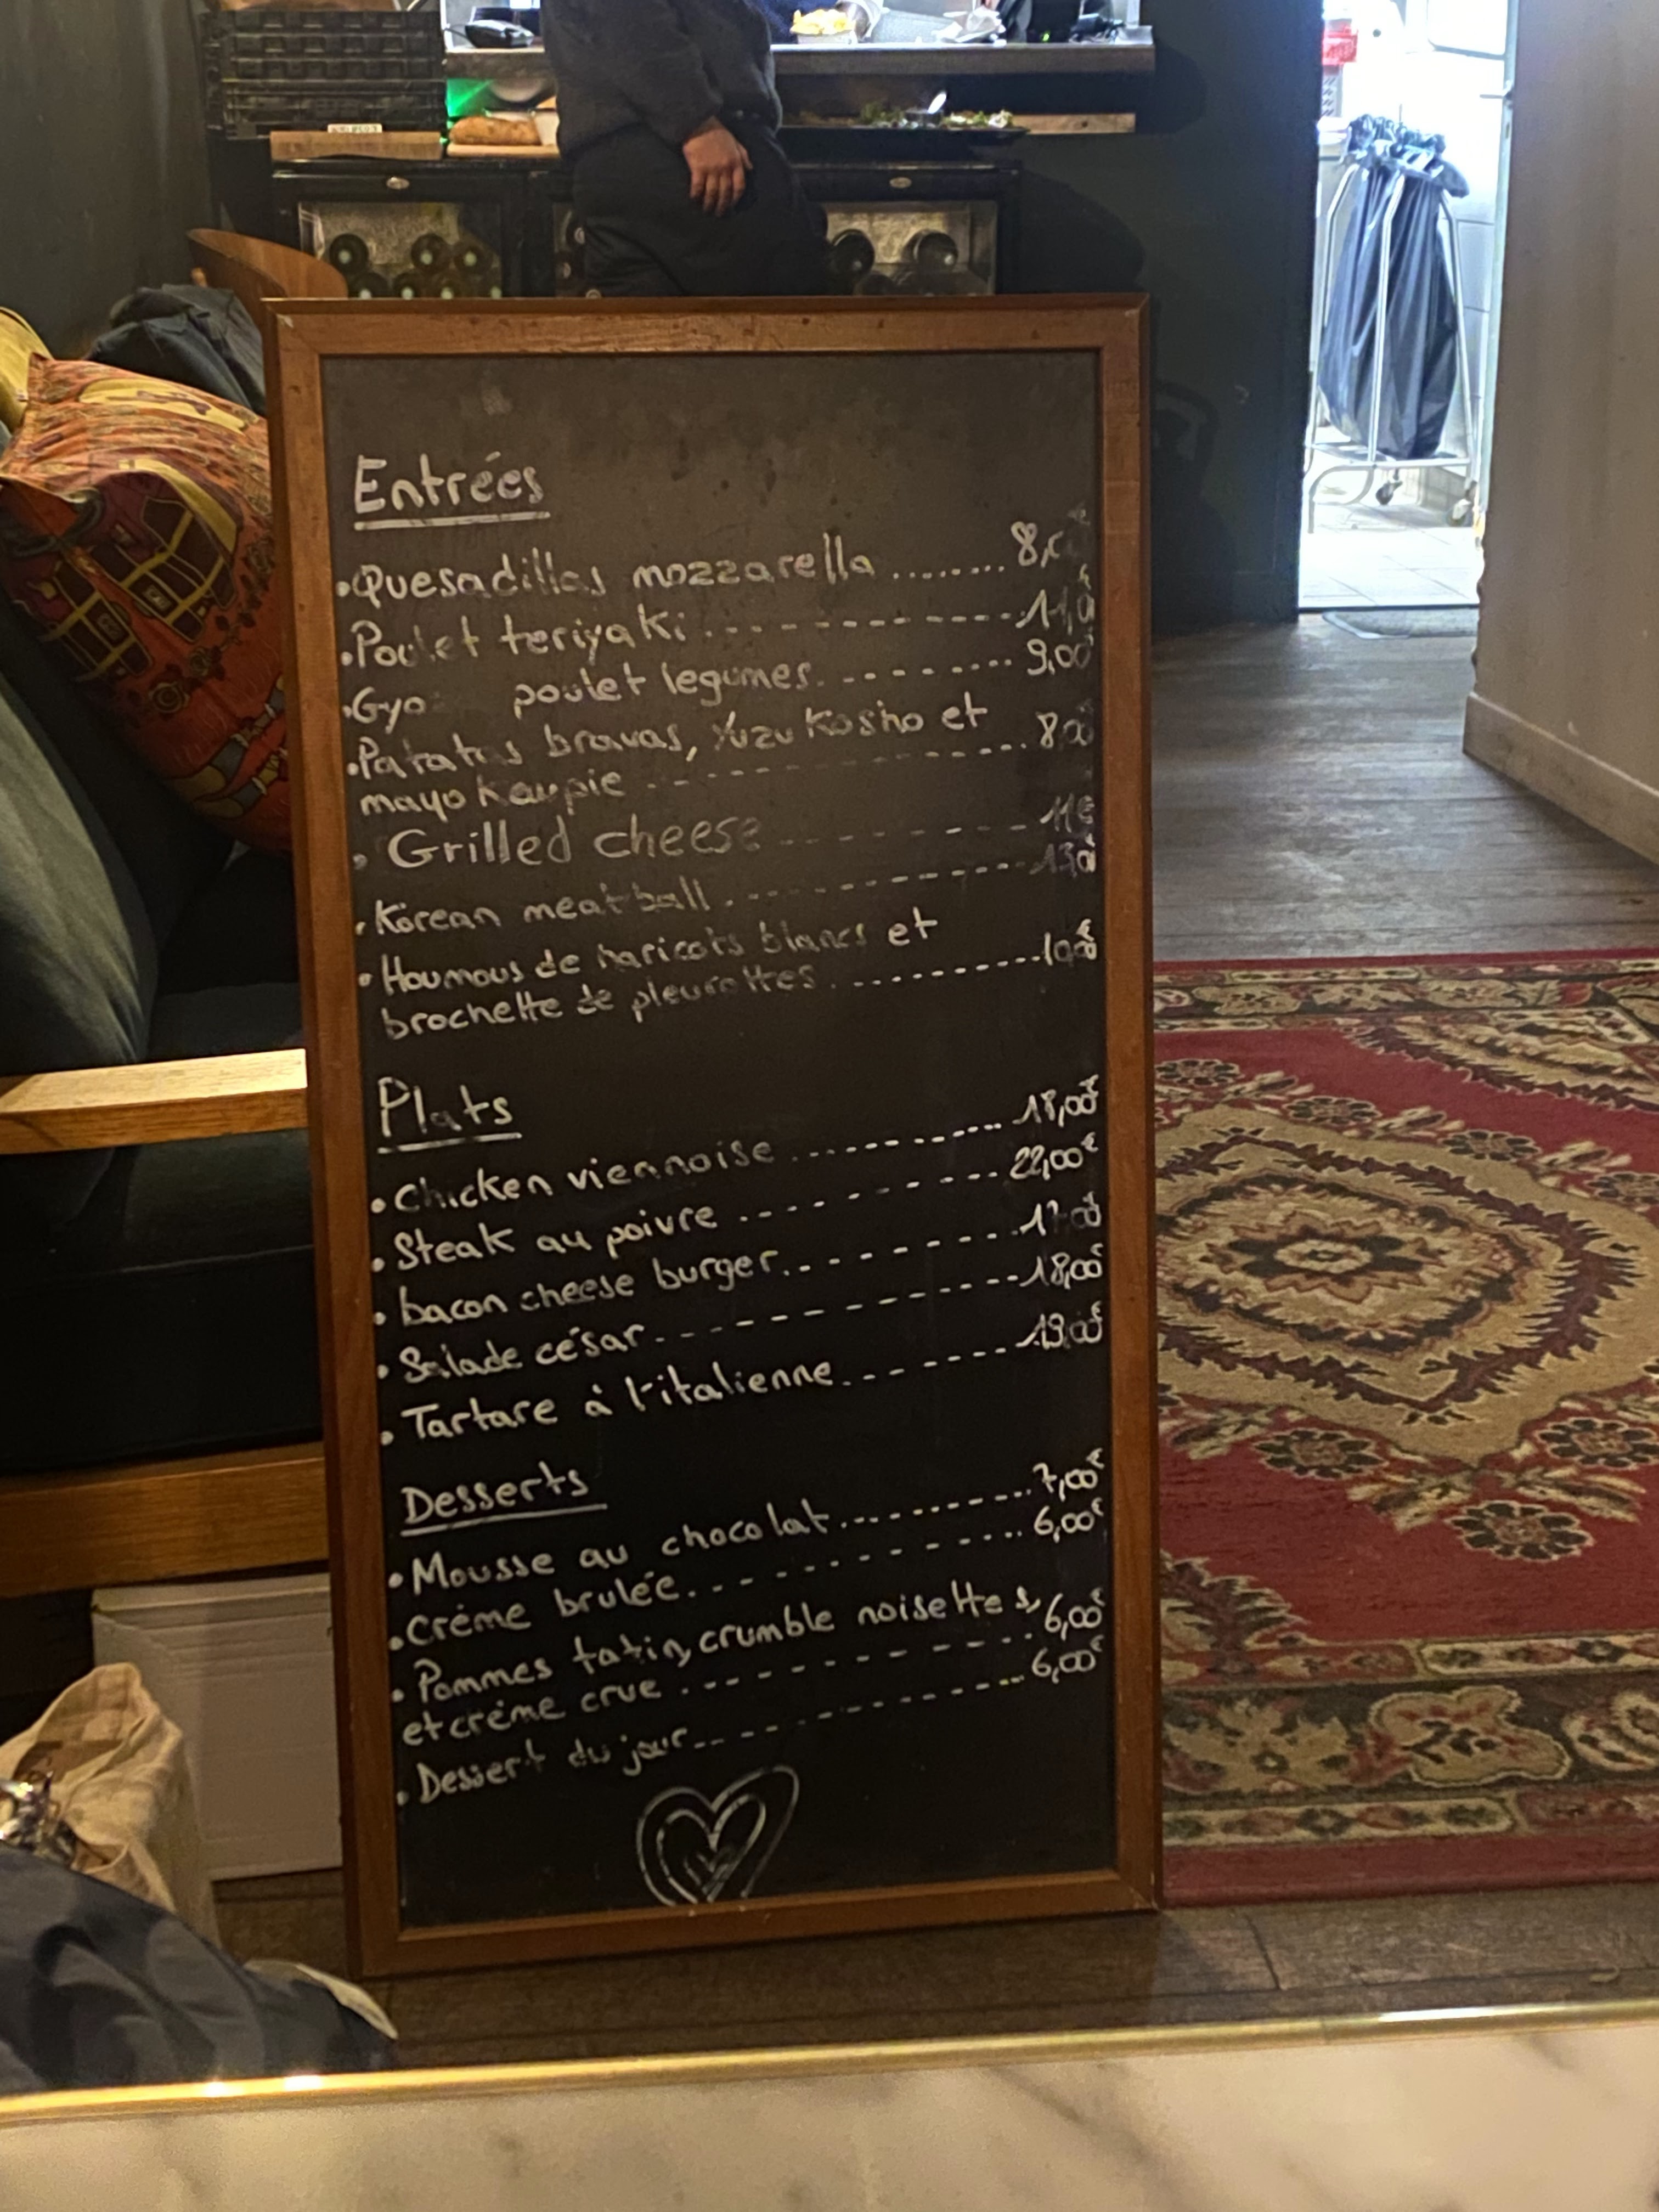 Entrées
•Quesadillas mozzarella ........ 8,
•Poulet teriyaki ------------ 11,0
•Gyo poulet legumes. --------- 9,00€
•Patatas bravas, Yuzu Kosho et
mayo Kewpie ---------------- 8,00
• Grilled cheese ---------- 11€
•Korean meatball ------------- 13,0
•Houmous de haricots blancs et
brochette de pleurottes ---------- 10€
Plats
•Chicken viennoise ............ 18,00€
•Steak au poivre ---------- 22,00€
•bacon cheese burger --------- 17,00€
•Salade césar ------------- 18,00€
•Tartare à l'italienne -------- 19,00€
Desserts
•Mousse au chocolat .......... 7,00€
•Créme brulée ------------- 6,00€
•Pommes tatin, crumble noisettes,
et créme crue ------------- 6,00€
•Dessert du jour ------------ 6,00€